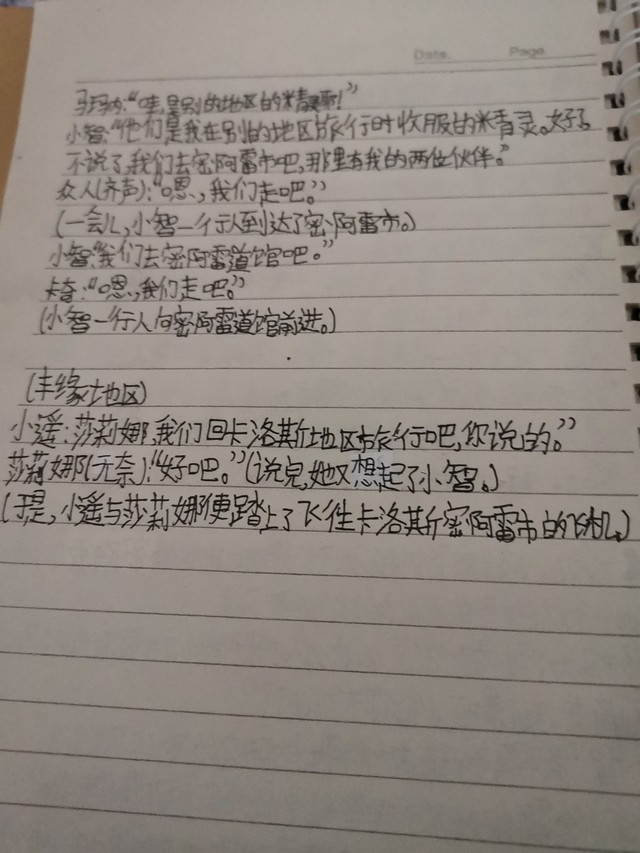 Date. Page
玛玛内:“哇,是别的地区的精灵耶!”
小智:“他们是我在别的地区旅行时收服的精灵。好了
不说了,我们去密阿雷市吧,那里有我的两位伙伴。”
众人(齐声):“嗯,我们走吧。”
(一会儿,小智一行人到达了密阿雷市。)
小智:“我们去密阿雷道馆吧。”
卡奇:“嗯,我们走吧。”
(小智一行人向密阿雷道馆前进。)
(丰缘地区)
小遥:莎莉娜,我们回卡洛斯地区旅行吧,你说的。”
莎莉娜(无奈):“好吧。”(说完,她又想起了小智。)
(于是,小遥与莎莉娜便踏上了飞往卡洛斯密阿雷市的飞机。)